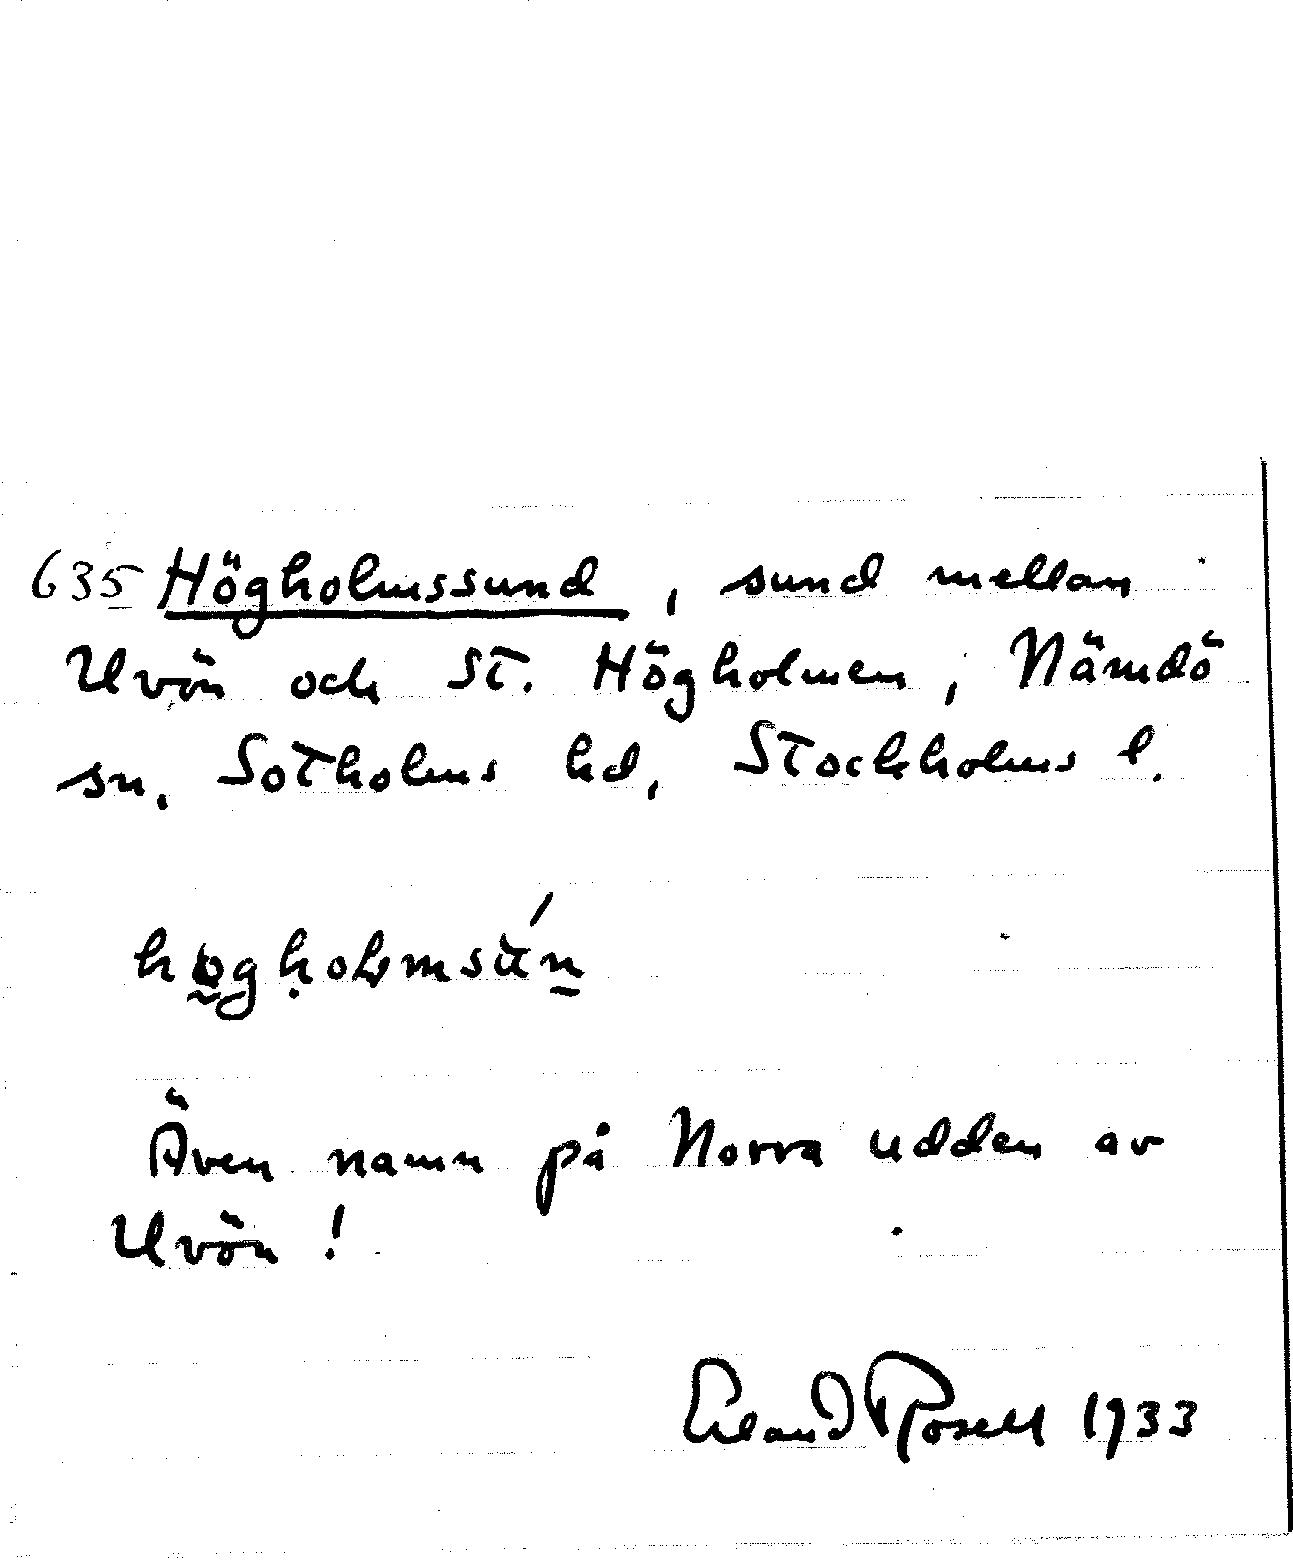 635 Högholmssund, sund mellan
Uvön och St. Högholmen, Nämdö
sn, Sotholms hd, Stockholms l.
Även namn på Norra udden av
Uvön!
Erland Rosell 1933